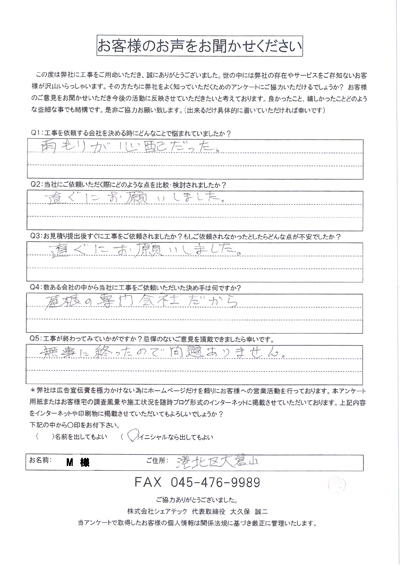 お客様のお声をお聞かせください
この度は弊社に工事をご用命いただき、誠にありがとうございました。世の中には弊社の存在やサービスをご存知ないお客
様が沢山いらっしゃいます。その方たちに弊社をよく知っていただくためのアンケートにご協力いただけるでしょうか？ お客様
のご意見をお聞かせいただき今後の活動に反映させていただきたいと考えております。良かったこと、嬉しかったことどのよう
な些細な事でも結構です。是非ご協力お願い致します。（出来るだけ具体的に書いていただければ幸いです）
Q1:工事を依頼する会社を決める時にどんなことで悩まれていましたか？
雨もりが心配だった。
Q2:当社にご依頼いただく際にどのような点を比較・検討されましたか？
直ぐにお願いしました。
Q3:お見積り提出後すぐに工事をご依頼されましたか？もしご依頼されなかったとしたらどんな点が不安でしたか？
直ぐにお願いしました。
Q4:数ある会社の中から当社に工事をご依頼いただいた決め手は何ですか？
屋根の専門会社だから
Q5:工事が終わってみていかがですか？忌憚のないご意見を頂戴できましたら幸いです。
無事に終ったので問題ありません。
＊弊社は広告宣伝費を極力かけない為にホームページだけを頼りにお客様への営業活動を行っております。本アンケート
用紙またはお客様宅の調査風景や施工状況を随時ブログ形式のインターネットに掲載させていただいております。上記内容
をインターネットや印刷物に掲載させていただいてもよろしいでしょうか？
下記の中から○印をお付下さい。
（ ）名前を出してもよい （○）イニシャルなら出してもよい
お名前： M 様 ご住所： 港北区大倉山
FAX 045-476-9989
ご協力ありがとうございました。
株式会社シェアテック 代表取締役 大久保 誠二
当アンケートで取得したお客様の個人情報は関係法規に基づき厳正に管理いたします。